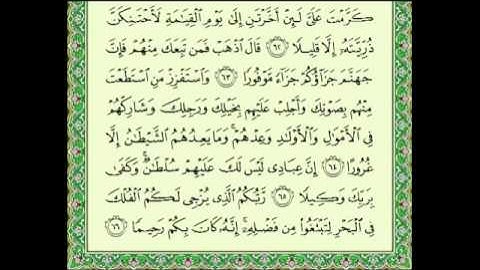 كَرَّمْتَ عَلَىَّ لَئِنْ أَخَّرْتَنِ إِلَىٰ يَوْمِ الْقِيَـٰمَةِ لَأَحْتَنِكَنَّ
ذُرِّيَّتَهُۥٓ إِلَّا قَلِيلًا ٦٢ قَالَ اذْهَبْ فَمَن تَبِعَكَ مِنْهُمْ فَإِنَّ
جَهَنَّمَ جَزَآؤُكُمْ جَزَآءً مَّوْفُورًا ٦٣ وَاسْتَفْزِزْ مَنِ اسْتَطَعْتَ
مِنْهُم بِصَوْتِكَ وَأَجْلِبْ عَلَيْهِم بِخَيْلِكَ وَرَجِلِكَ وَشَارِكْهُمْ
فِى الْأَمْوَٰلِ وَالْأَوْلَـٰدِ وَعِدْهُمْ ۚ وَمَا يَعِدُهُمُ الشَّيْطَـٰنُ إِلَّا
غُرُورًا ٦٤ إِنَّ عِبَادِى لَيْسَ لَكَ عَلَيْهِمْ سُلْطَـٰنٌ ۚ وَكَفَىٰ
بِرَبِّكَ وَكِيلًا ٦٥ رَّبُّكُمُ الَّذِى يُزْجِى لَكُمُ الْفُلْكَ
فِى الْبَحْرِ لِتَبْتَغُوا۟ مِن فَضْلِهِۦٓ ۚ إِنَّهُۥ كَانَ بِكُمْ رَحِيمًا ٦٦